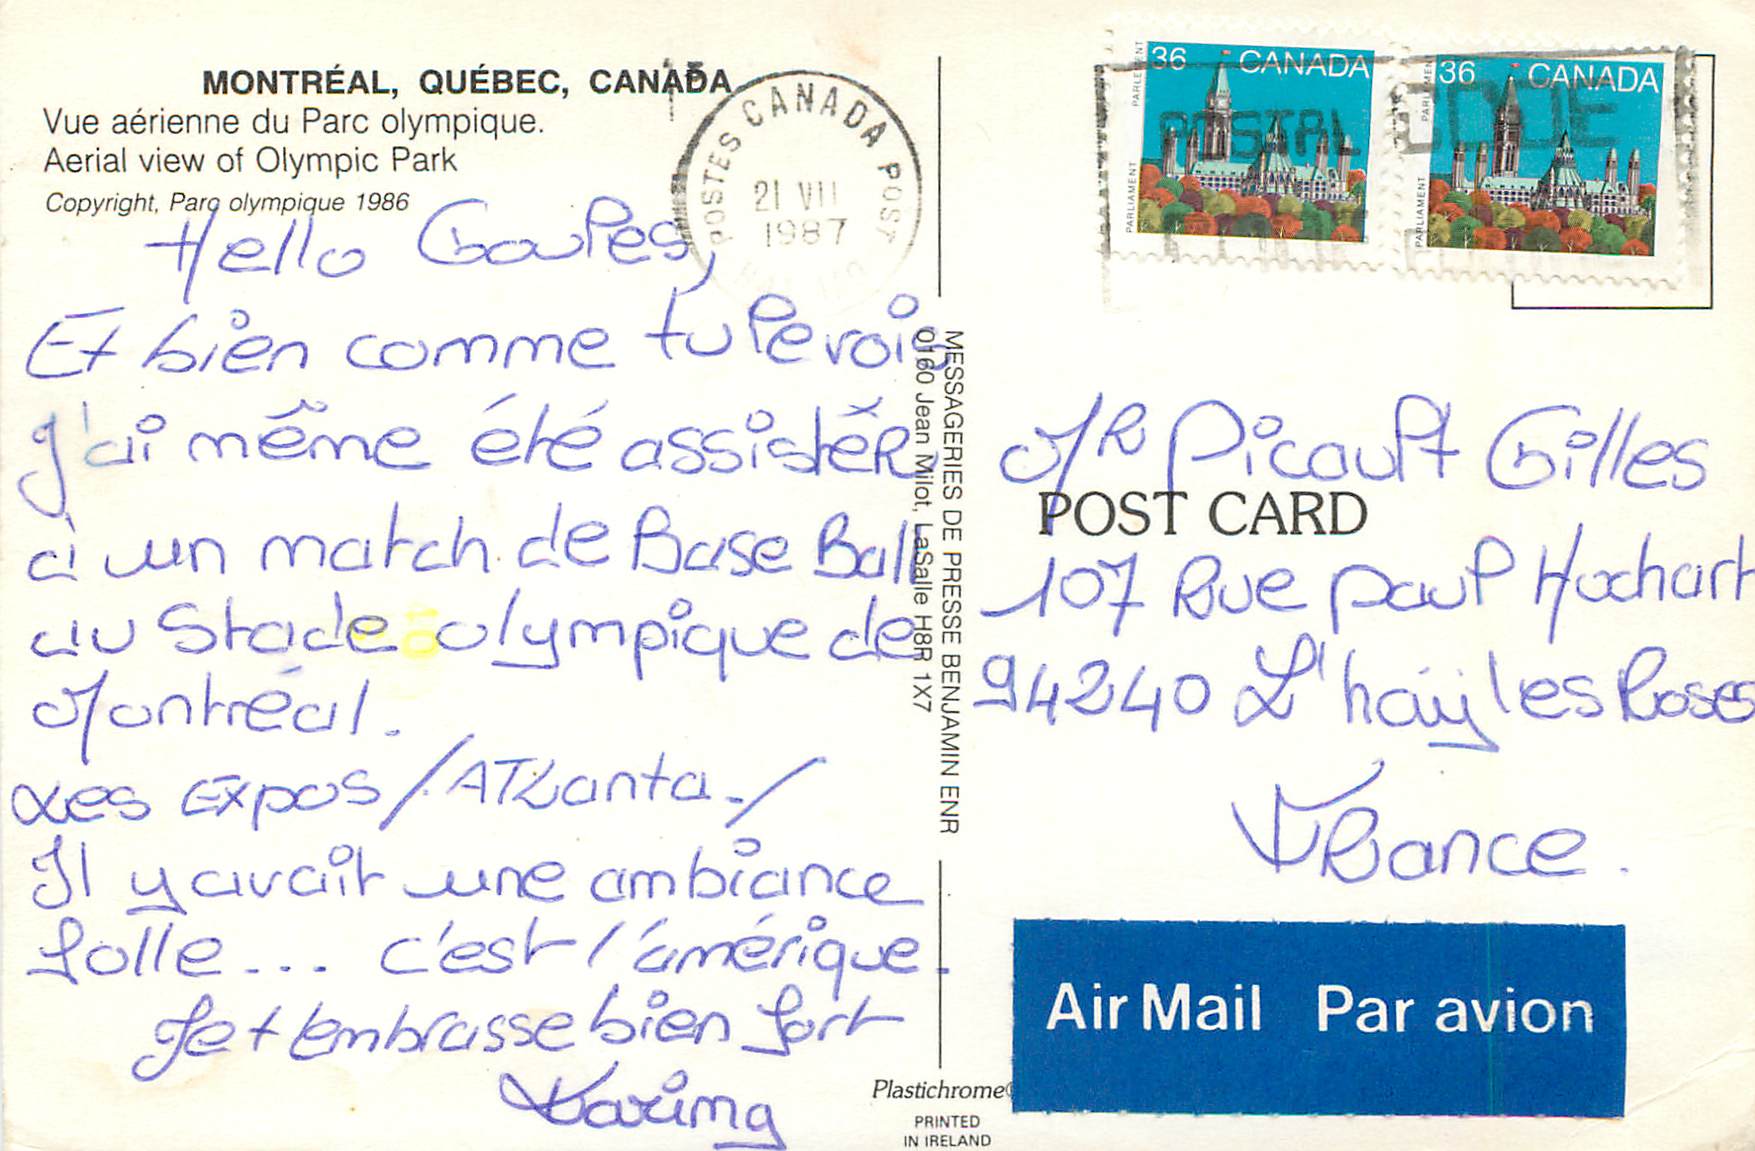 MONTRÉAL, QUÉBEC, CANADA
Vue aérienne du Parc olympique.
Aerial view of Olympic Park
Copyright, Parc olympique 1986
POSTES CANADA POST
21 VII
1987
Hello
Et bien comme tu le vois
J'ai même été assister
à un match de Base Ball
au Stade olympique de
Montréal.
Les Expos / Atlanta. /
Il y avait une ambiance
folle... c'est l'amérique.
Je t'embrasse bien fort
MESSAGERIES DE PRESSE BENJAMIN ENR
0160 Jean Milot, LaSalle H8R 1X7
36 CANADA
PARLEMENT
PARLIAMENT
36 CANADA
PARLEMENT
PARLIAMENT
POSTAL CODE
Mr Picault Gilles
POST CARD
107 Rue paul Hochart
94240 L'haÿ les Roses
France.
Air Mail Par avion
Plastichrome®
PRINTED
IN IRELAND